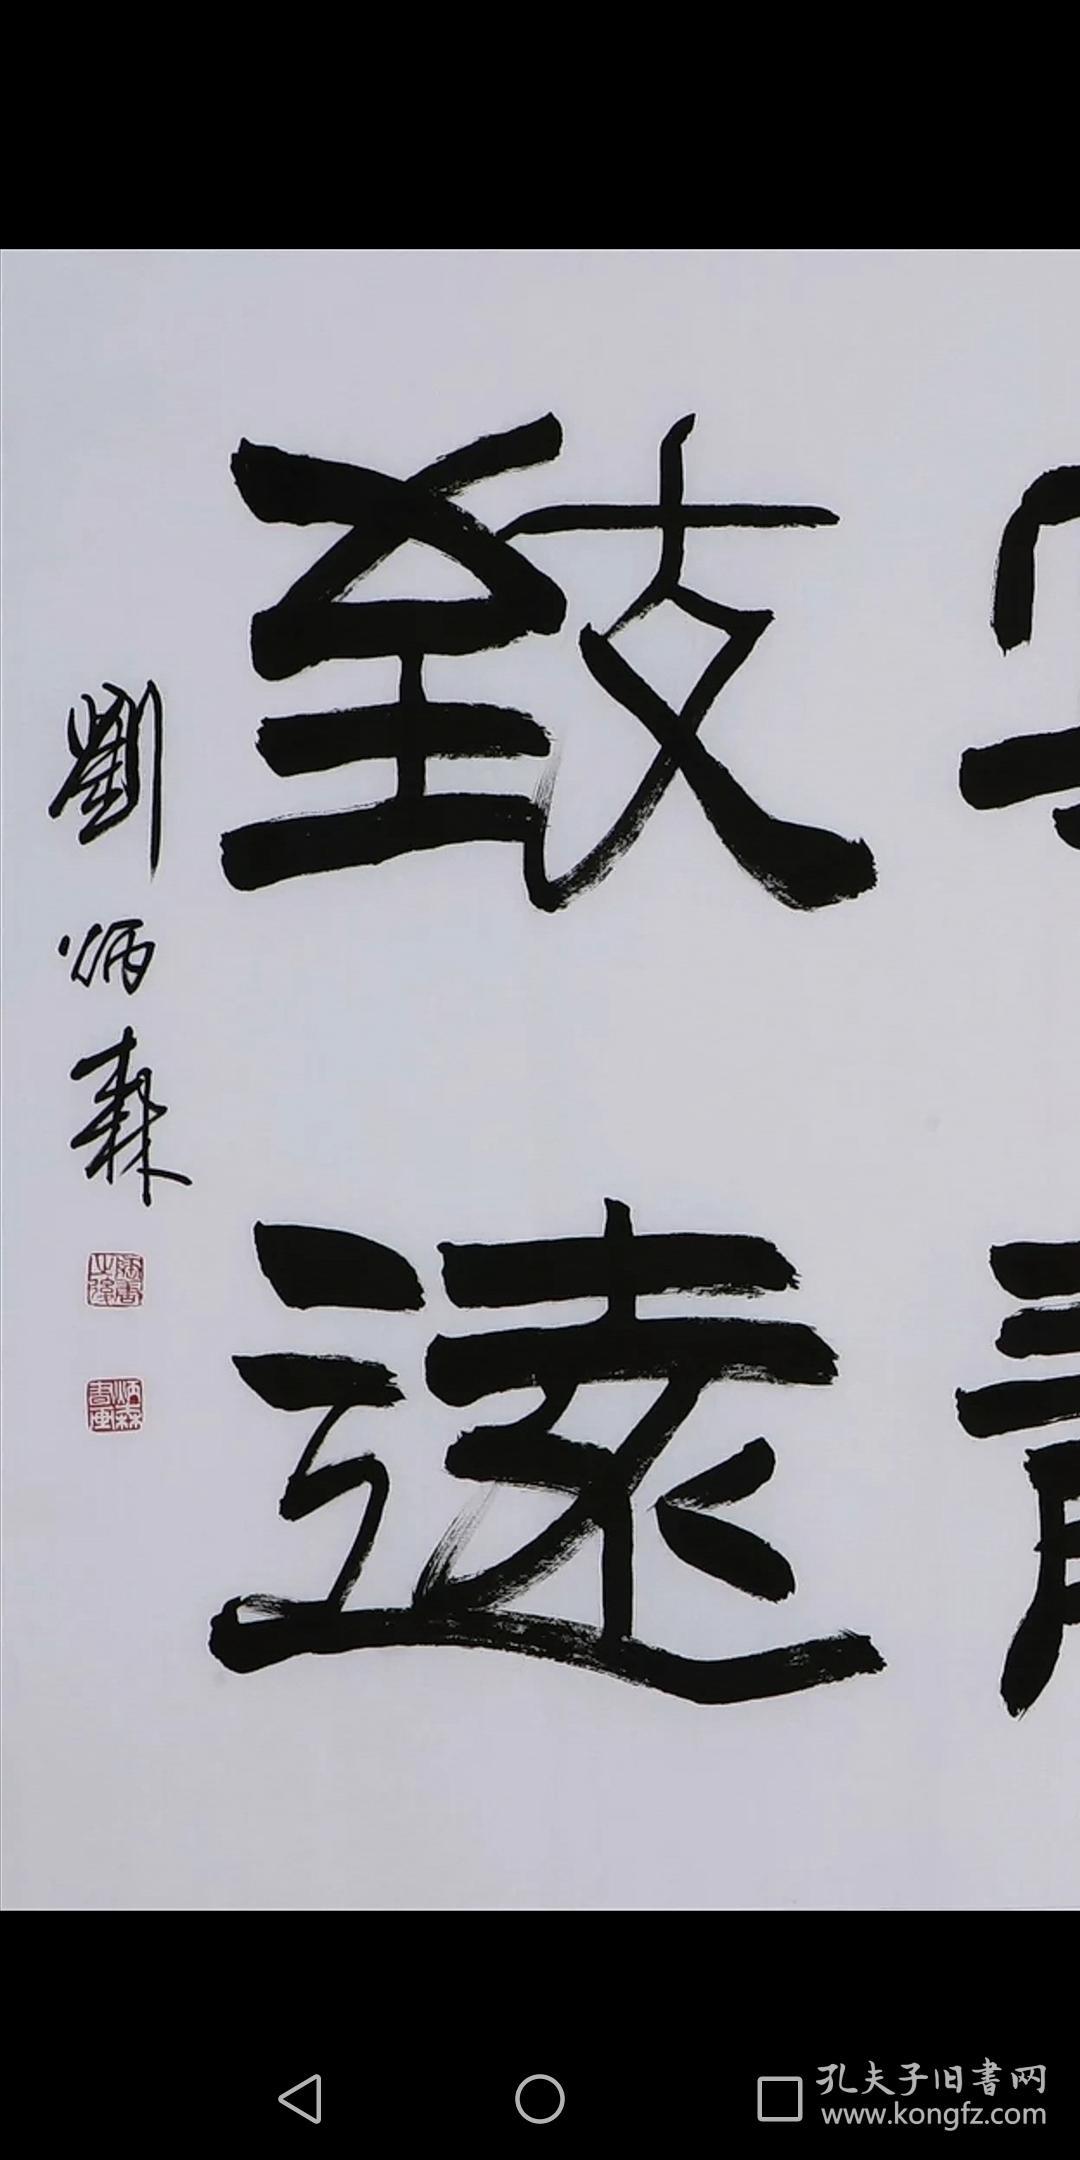 致遠
劉炳森
炳森書画
孔夫子旧书网
www.kongfz.com